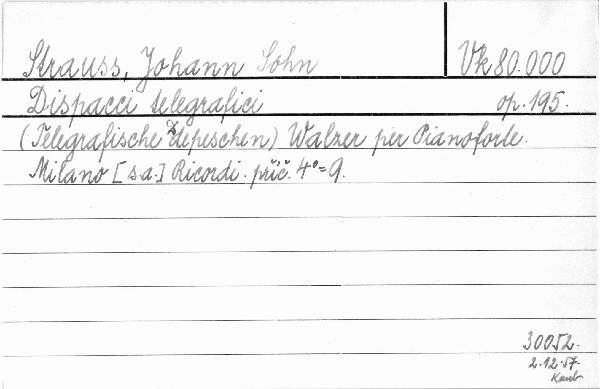 Strauss, Johann Sohn Vk 80.000
Dispacci telegrafici op. 195.
(Telegrafische Depeschen) Walzer per Pianoforte.
Milano [s.a.] Ricordi. příč. 4°= 9.
30052.
2.12.57.